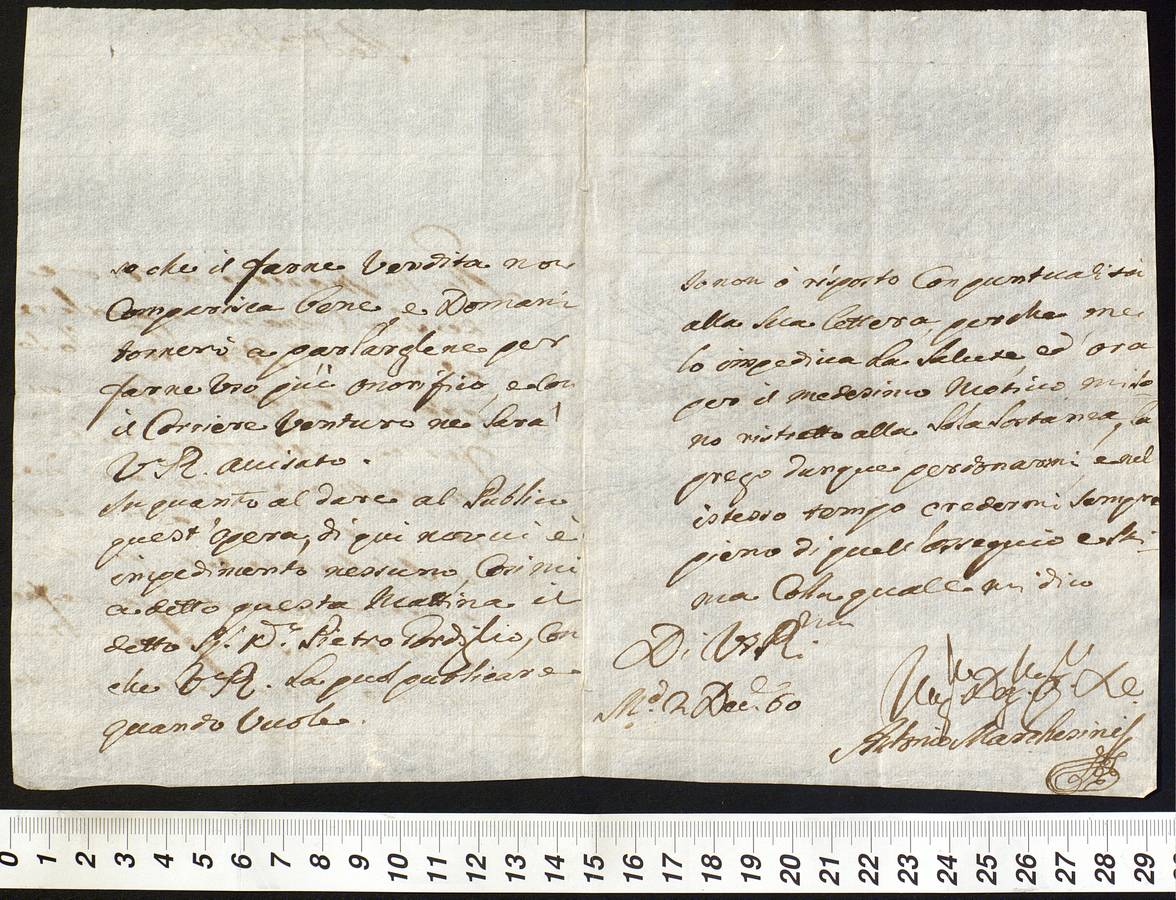 so che il farne Vendita non
Comparisca bene, e Domani
tornerò a parlarglene per
farne Uso più onorifico, e con
il Corriere Venturo ne Sarà
V. R. avisato.
In quanto al dare al Publico
quest'opera, di qui non vi è
impedimento nessuno, Così mi
a detto questa Mattina il
detto Pietro Pordiglio, Con
che V. R. La puol publicare
quando Vuole.
Io non ò risposto Con puntualità
alla Sua Lettera, perche me
lo impediva La Salute, ed ora
per il medesimo Motivo mi so
no ristretto alla Sola Sostanza, La
prego dunque perdonarmi, e nel
istesso tempo credermi Sempre
pieno di quell'ossequio e sti-
ma Cola quale mi dico
Di V. R.
M.d 2 Dec.e 60
Antonio Marchesini
0 1 2 3 4 5 6 7 8 9 10 11 12 13 14 15 16 17 18 19 20 21 22 23 24 25 26 27 28 29